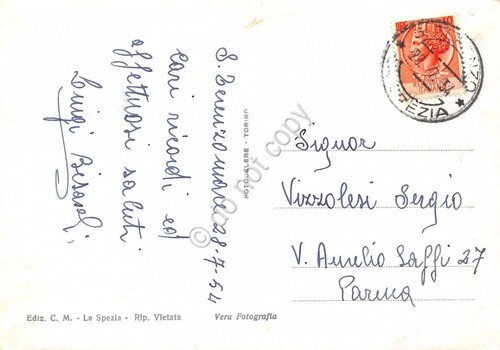 S. Terenzo mare 28-7-54
cari ricordi ed
affettuosi saluti
Luigi
FOTOCELERE - TORINO
Signor
Vizzolesi Sergio
V. Aurelio Saffi 27
Parma
Ediz. C. M. - La Spezia - Rip. Vietata
Vera Fotografia
do not copy